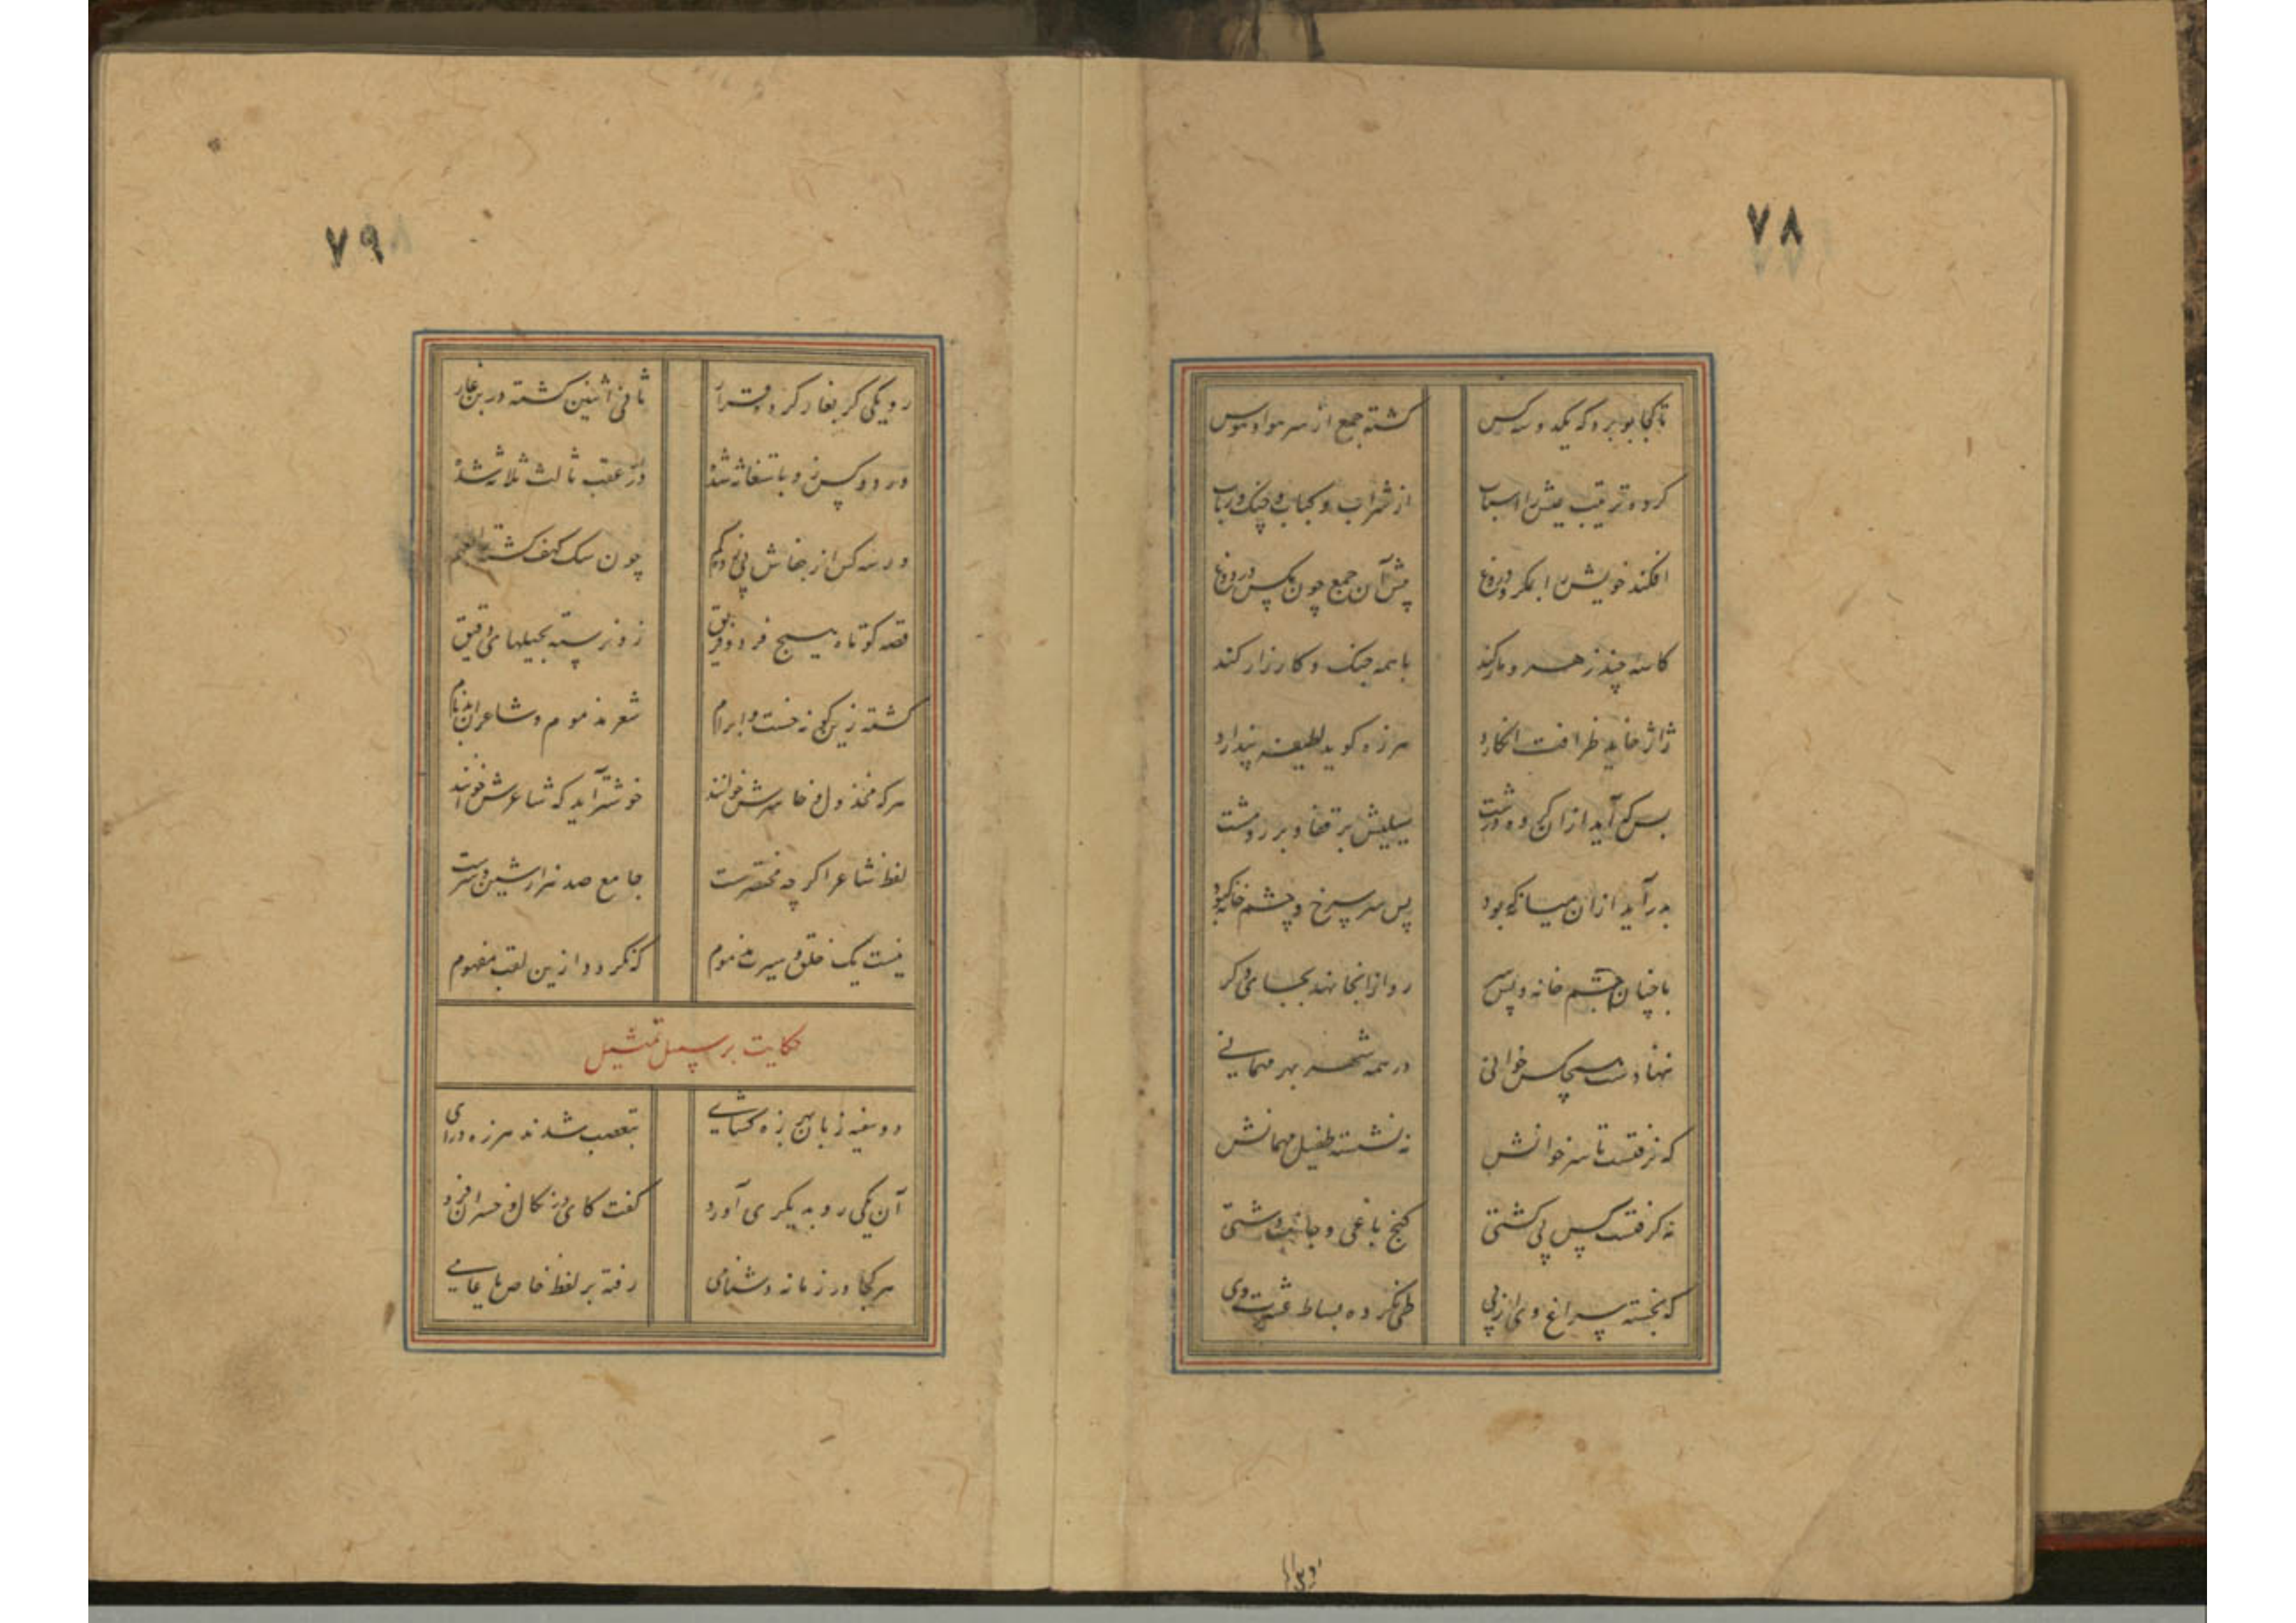 ٧٨
تا کجا بو برد که یکدو سه کس
کشته جمع از سر هوا و هوس
کرده ترتیب عیش را اسباب
از شراب و کباب و چنک و رباب
افکند خویش را بمکر و دروغ
پیش آن جمع چون مکس در دوغ
کاسه چند زهر و مار کند
با همه جنک و کارزار کند
ژاژ خاید ظرافت انکارد
هرزه کوید لطیفه پندارد
بس که آید ازان کروه درشت
سیلیش بر قفا و بر رو مشت
بدر آید ازان میانکه بود
پس سر سرخ و چشم خانه کبود
با چنان چشم خانه و پس سر
رو ازانجا نهد بجای دکر
ننهادست هیچکس خوانی
در همه شهر بهر مهمانی
که نرفتست تا سر خوانش
نه نشسته طفیل مهمانش
نه کرفتست کس پی کشتی
کنج باغی و جانب دشتی
که نجسته سراغ وی از پی
طی نکرده بساط عشرت وی
٧٩
رو یکی کر بغار کرد قرار
ثانی اثنین کشته در بن غار
ور دو کس زو باستغاثه شد
در عقب ثالث ثلاثه شد
ور سه کس از جفاش پی زد کم
چون سک کهف کشته
قصه کوتاه هیچ فرد و فریق
زو نرسته بحیلهای دقیق
کشته زین کونه خست و ابرام
شعر مذموم و شاعران بدنام
هر که مخذول و خاسرش خوانند
خوشتر آید که شاعرش خوانند
لفظ شاعر اکر چه مختصرست
جامع صد هزار شین و شرست
نیست یک خلق و سیرت مذموم
که نکردد ازین لقب مفهوم
حکایت بر سبیل تمثیل
دو سفیه زبان بهرزه کشای
بتعصب شدند هرزه درای
آن یکی رو به دیکری آورد
کفت کای
هر کجا در زمانه دشنامی
رفته بر لفظ خاص یا عامی